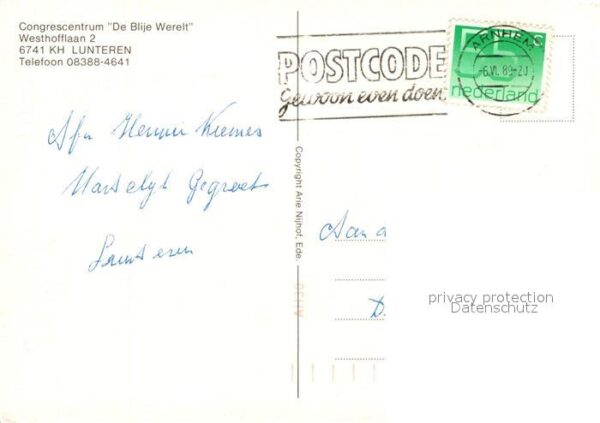 Congrescentrum "De Blije Werelt"
Westhofflaan 2
6741 KH LUNTEREN
Telefoon 08388-4641
POSTCODE
gewoon even doen
ARNHEM
55 c
nederland
Hartelijk Gegroet
Lunteren
Copyright Arie Nijhof, Ede.
Aan
D.
privacy protection
Datenschutz